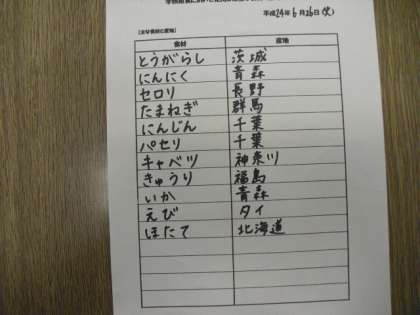 平成24年6月26日(火)
【主な食材の産地】
食材 産地
とうがらし 茨城
にんにく 青森
セロリ 長野
たまねぎ 群馬
にんじん 千葉
パセリ 千葉
キャベツ 神奈川
きゅうり 福島
いか 青森
えび タイ
ほたて 北海道